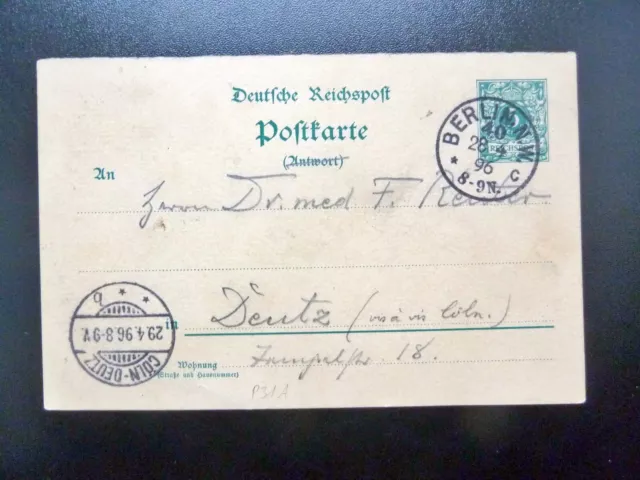 Deutsche Reichspost
Postkarte
(Antwort)
An
Herrn Dr. med F.
Deutz (vis à vis Cöln.)
in
18.
Wohnung
(Straße und Hausnummer)
P31A
BERLIN N.W.
40
28 4
96
8-9N.
* c
REICHSPOST
CÖLN-DEUTZ
29.4.96.8-9V.
* b *